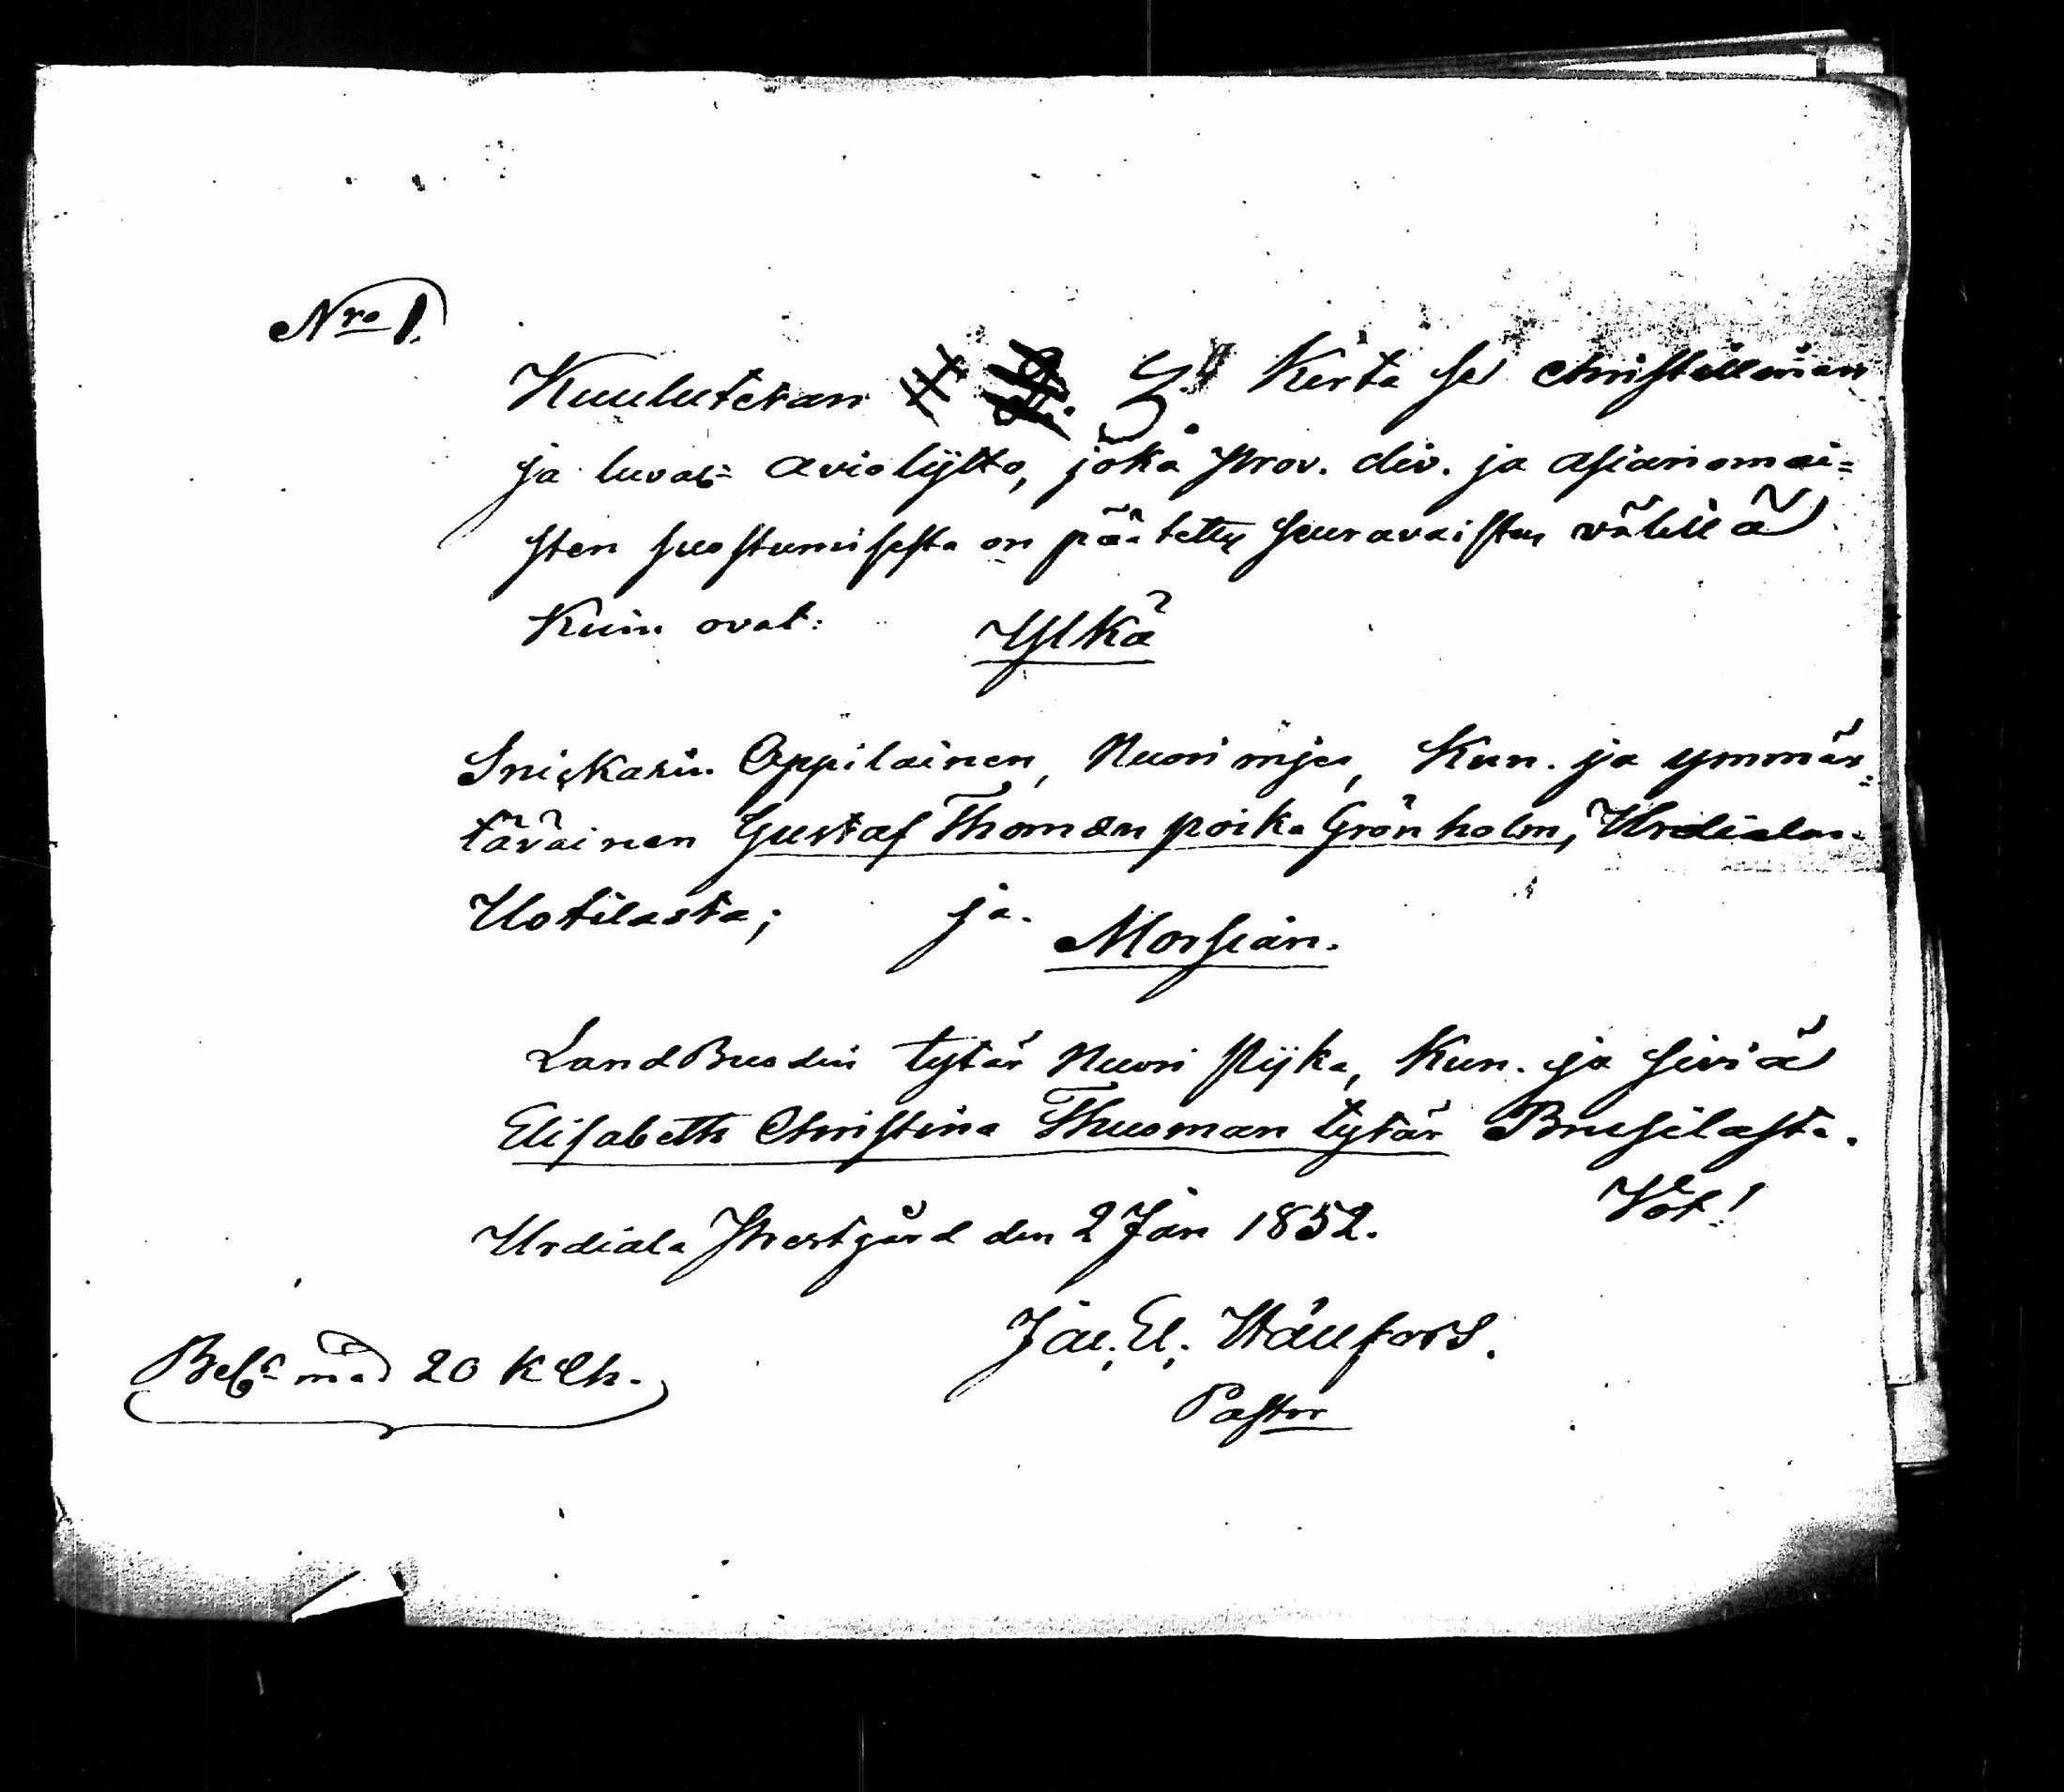 Nro 1.
Kuulutetan 3. Kerta se christillinen
ja luval= aviokijtto, joka prov. div. ja asianomai=
sten suostumisesta on päätetty seuravaisten välillä
Kuin ovat: Ylkä
Snickarin Oppilainen, Nuori mjes, Kun. ja ymmär=
täväinen Gustaf Thoman poika Grönholm, Urdialan
Uotilasta; ja Morsian.
Landbuodin tytär Nuori pijka, Kun. ja siviä
Elisabeth Christina Thuoman tytär Brusilasta.
Urdiala Prestgård den 2 Jan 1852.
Jac. El. Wällfors.
Pastor
med 20 k